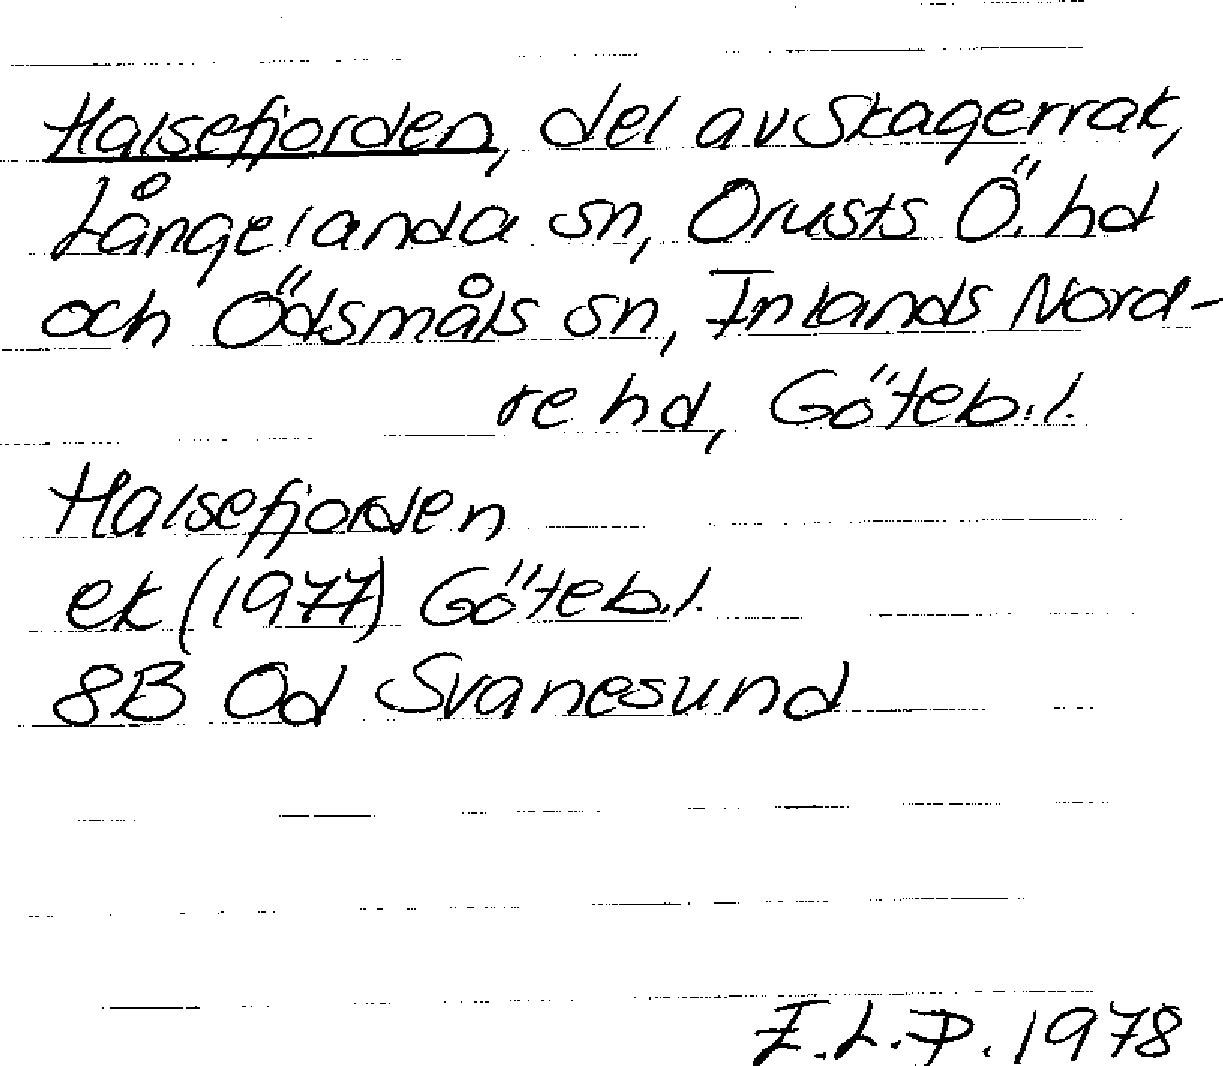 Halsefjorden, del av Skagerrak,
Långelanda sn, Orusts Ö. hd
och Ödsmåls sn, Inlands Nord-
re hd, Göteb. l.
Halsefjorden
ek (1977) Göteb. l.
8B 0d Svanesund
E.L.P. 1978